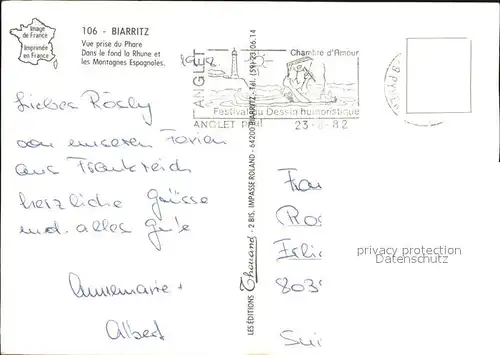 Image
de France
Imprimée
en France
106 - BIARRITZ
Vue prise du Phare
Dans le fond la Rhune et
les Montagnes Espagnoles.
ANGLET
Chambre d'Amour
Festival du Dessin humoristique
ANGLET
23-8-82
Liebes Rösly
von unseren Ferien
aus Frankreich
herzliche Grüsse
und alles Gute
Annemarie +
Albert
LES ÉDITIONS Thouand - 2 BIS, IMPASSE ROLAND - 64200 BIARRITZ - Tél. (59) 23.06.14
Frau
Ros
Erli
803
Sui
privacy protection
AKPOOL.DE